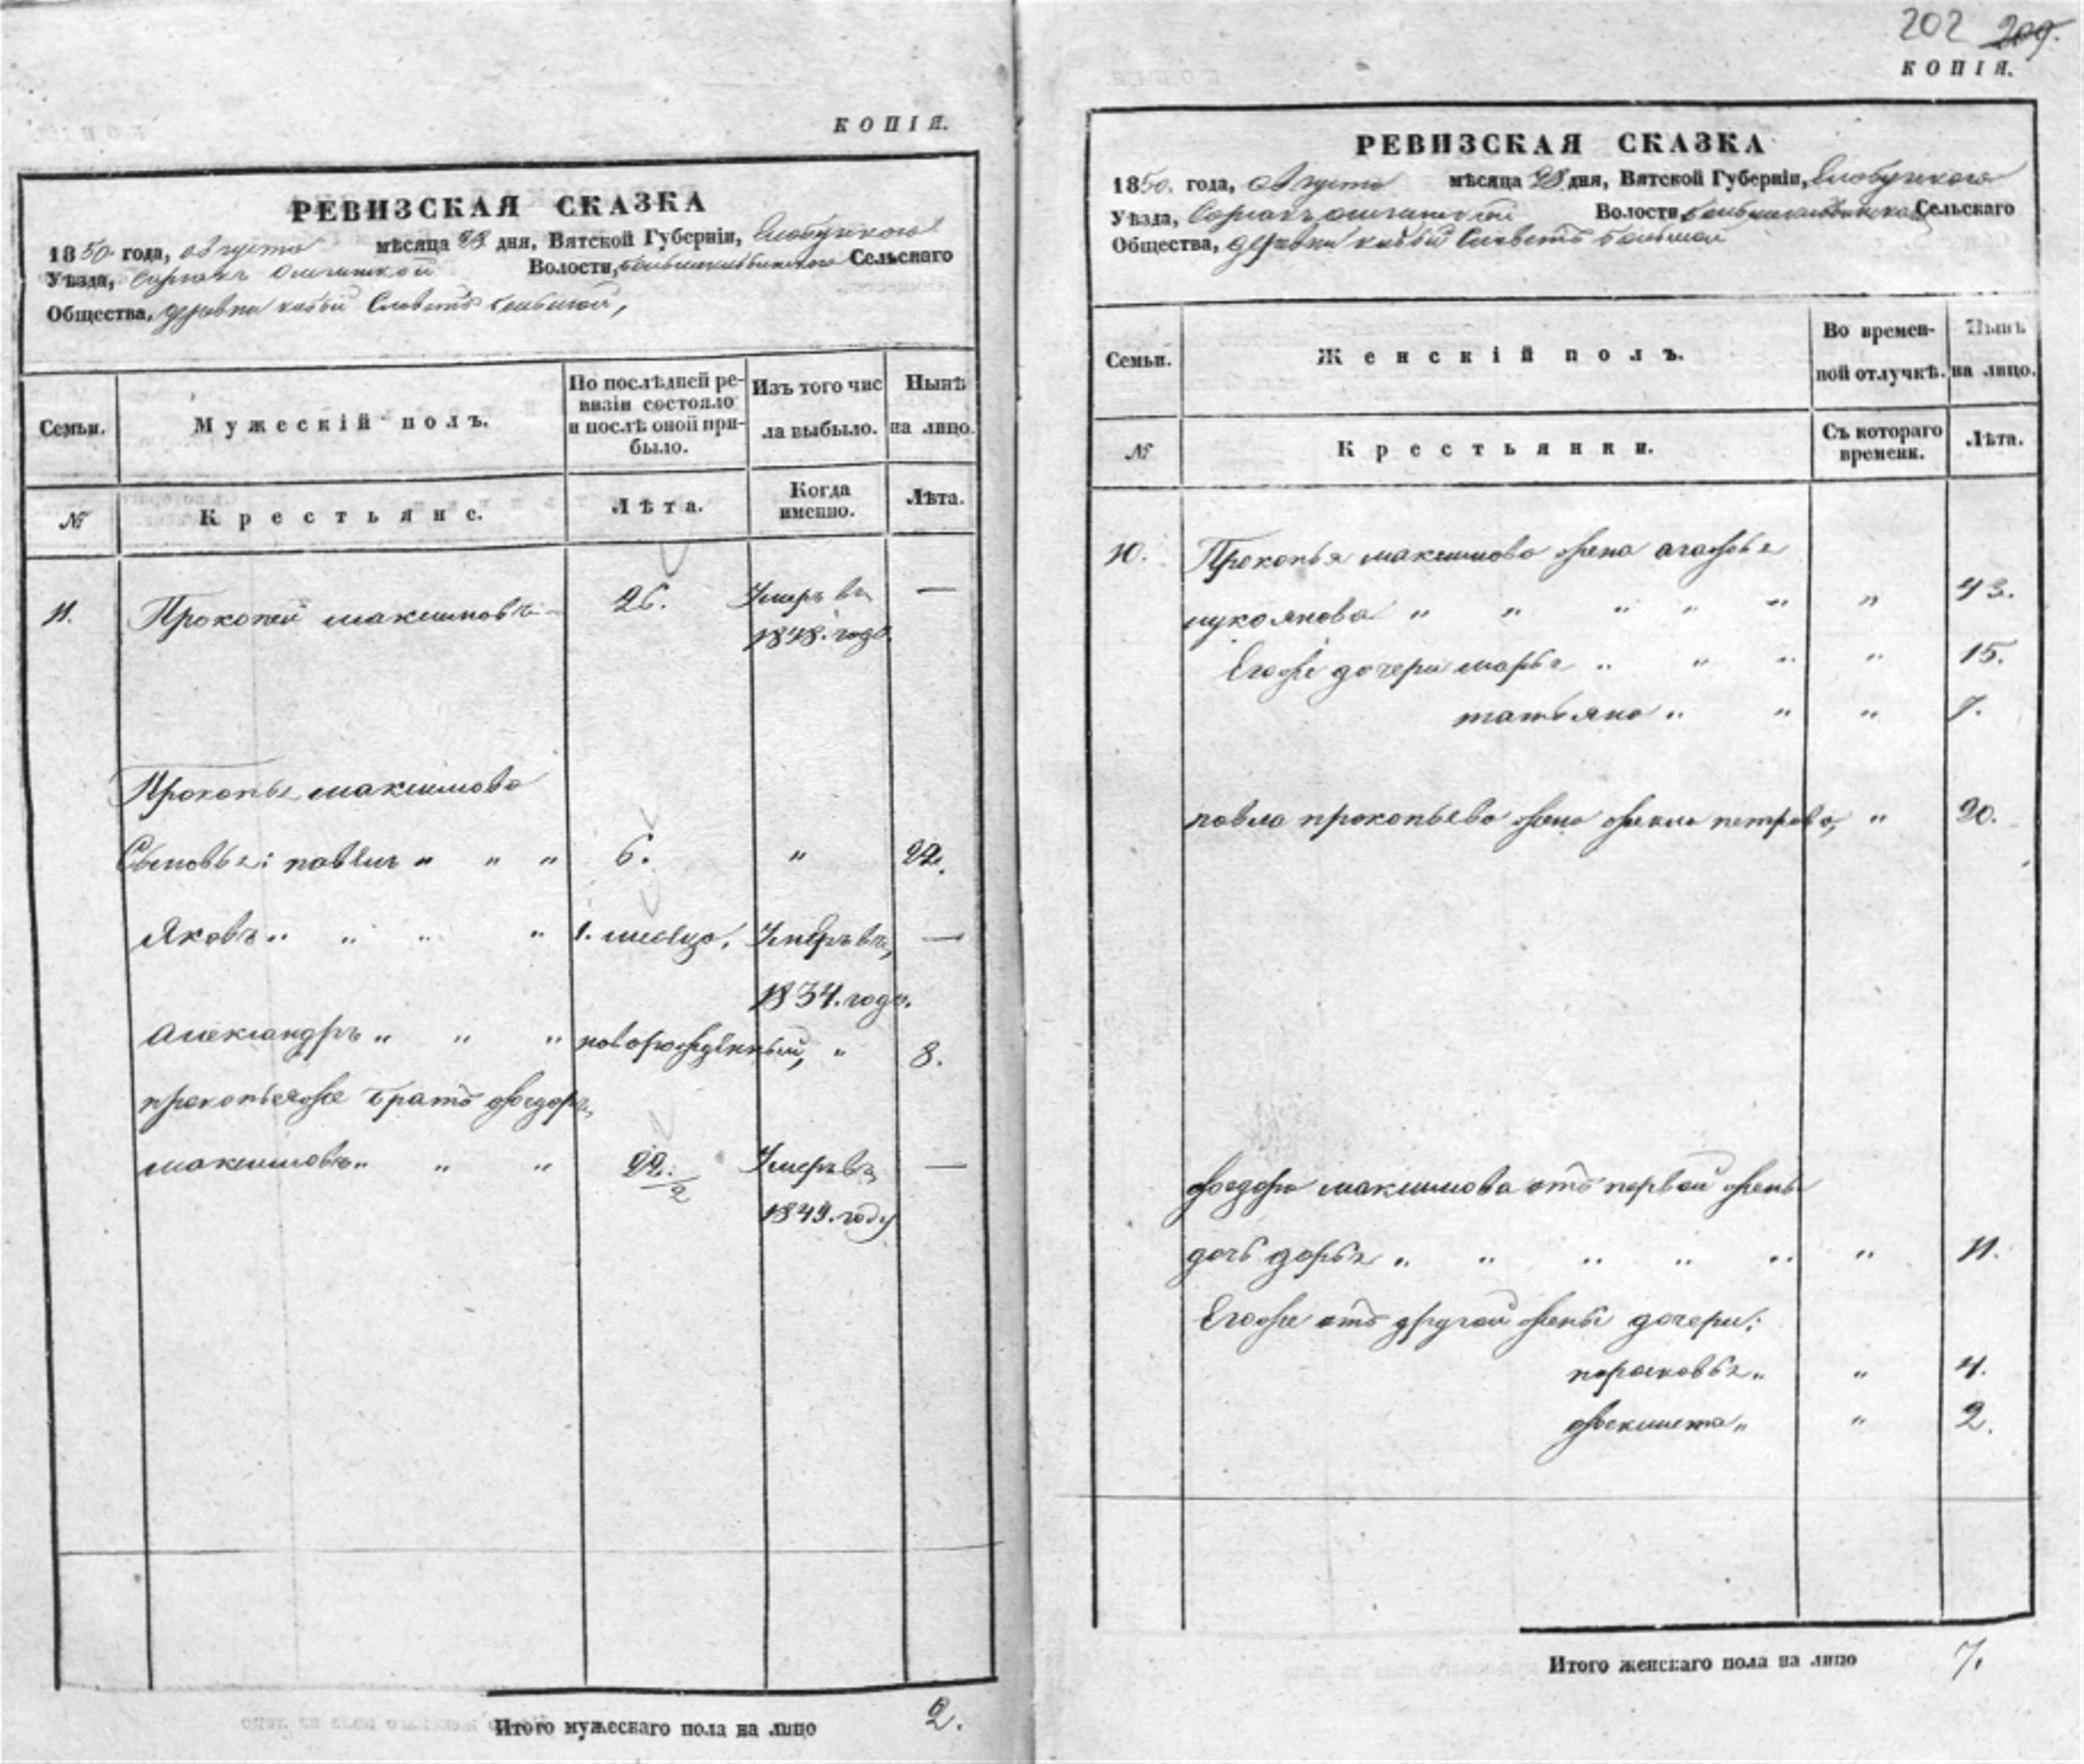 КОПІЯ.
РЕВИЗСКАЯ СКАЗКА
1850. года, августа мѣсяца 28 дня, Вятской Губерніи, Слободскаго
Уѣзда, Волости, Сельскаго
Общества, деревни
Семьи. Мужескій полъ. По послѣдней ревизіи состояло и послѣ оной прибыло. Изъ того числа выбыло. Нынѣ на лицо.
№ Крестьяне. Лѣта. Когда именно. Лѣта.
11. Прокопей максимовъ 26. Умеръ въ —
1848. году.
Прокопья максимова
Сыновья: павелъ „ „ „ 6. „ 22.
Яковъ „ „ „ „ 1. месяца, Умеръ въ —
1834. году.
Александръ „ „ „ новорожденный, „ 8.
прокопья же братъ федоръ
максимовъ „ „ „ 22. /2 Умеръ въ —
1849. году
Итого мужескаго пола на лицо 2.
202 209.
КОПІЯ.
РЕВИЗСКАЯ СКАЗКА
1850. года, августа мѣсяца 28 дня, Вятской Губерніи, Слободскаго
Уѣзда, Волости, Сельскаго
Общества, деревни
Семьи. Женскій полъ. Во временной отлучкѣ. Нынѣ на лицо.
№ Крестьянки. Съ котораго времени. Лѣта.
Прокопья максимова жена агафья
лукоянова „ „ „ „ „ „ 43.
Егоже дочери марья „ „ „ „ 15.
татьяна „ „ „ 7.
павла прокопьева жена фекла петрова, „ 20.
федора максимова отъ первой жены
дочь дарья „ „ „ „ „ „ 11.
Егоже отъ другой жены дочери:
парасковья „ „ 4.
„ „ 2.
Итого женскаго пола на лицо 7.